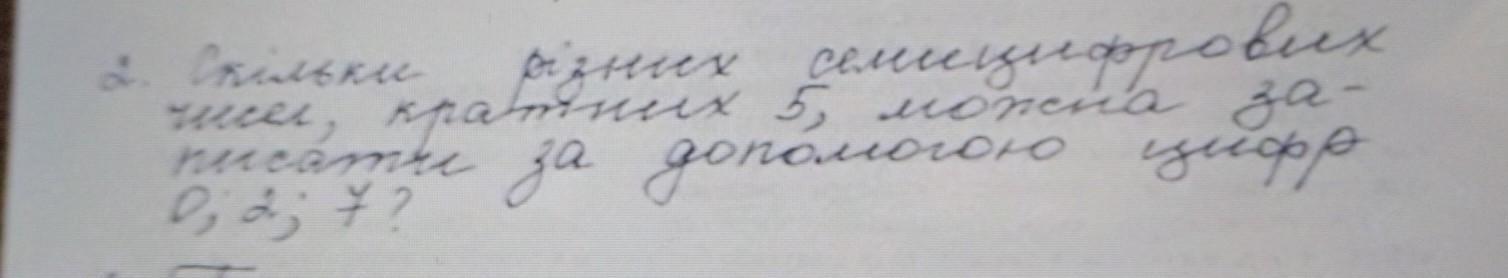 2. Скільки різних семицифрових
чисел, кратних 5, можна за-
писати за допомогою цифр
0; 2; 7?